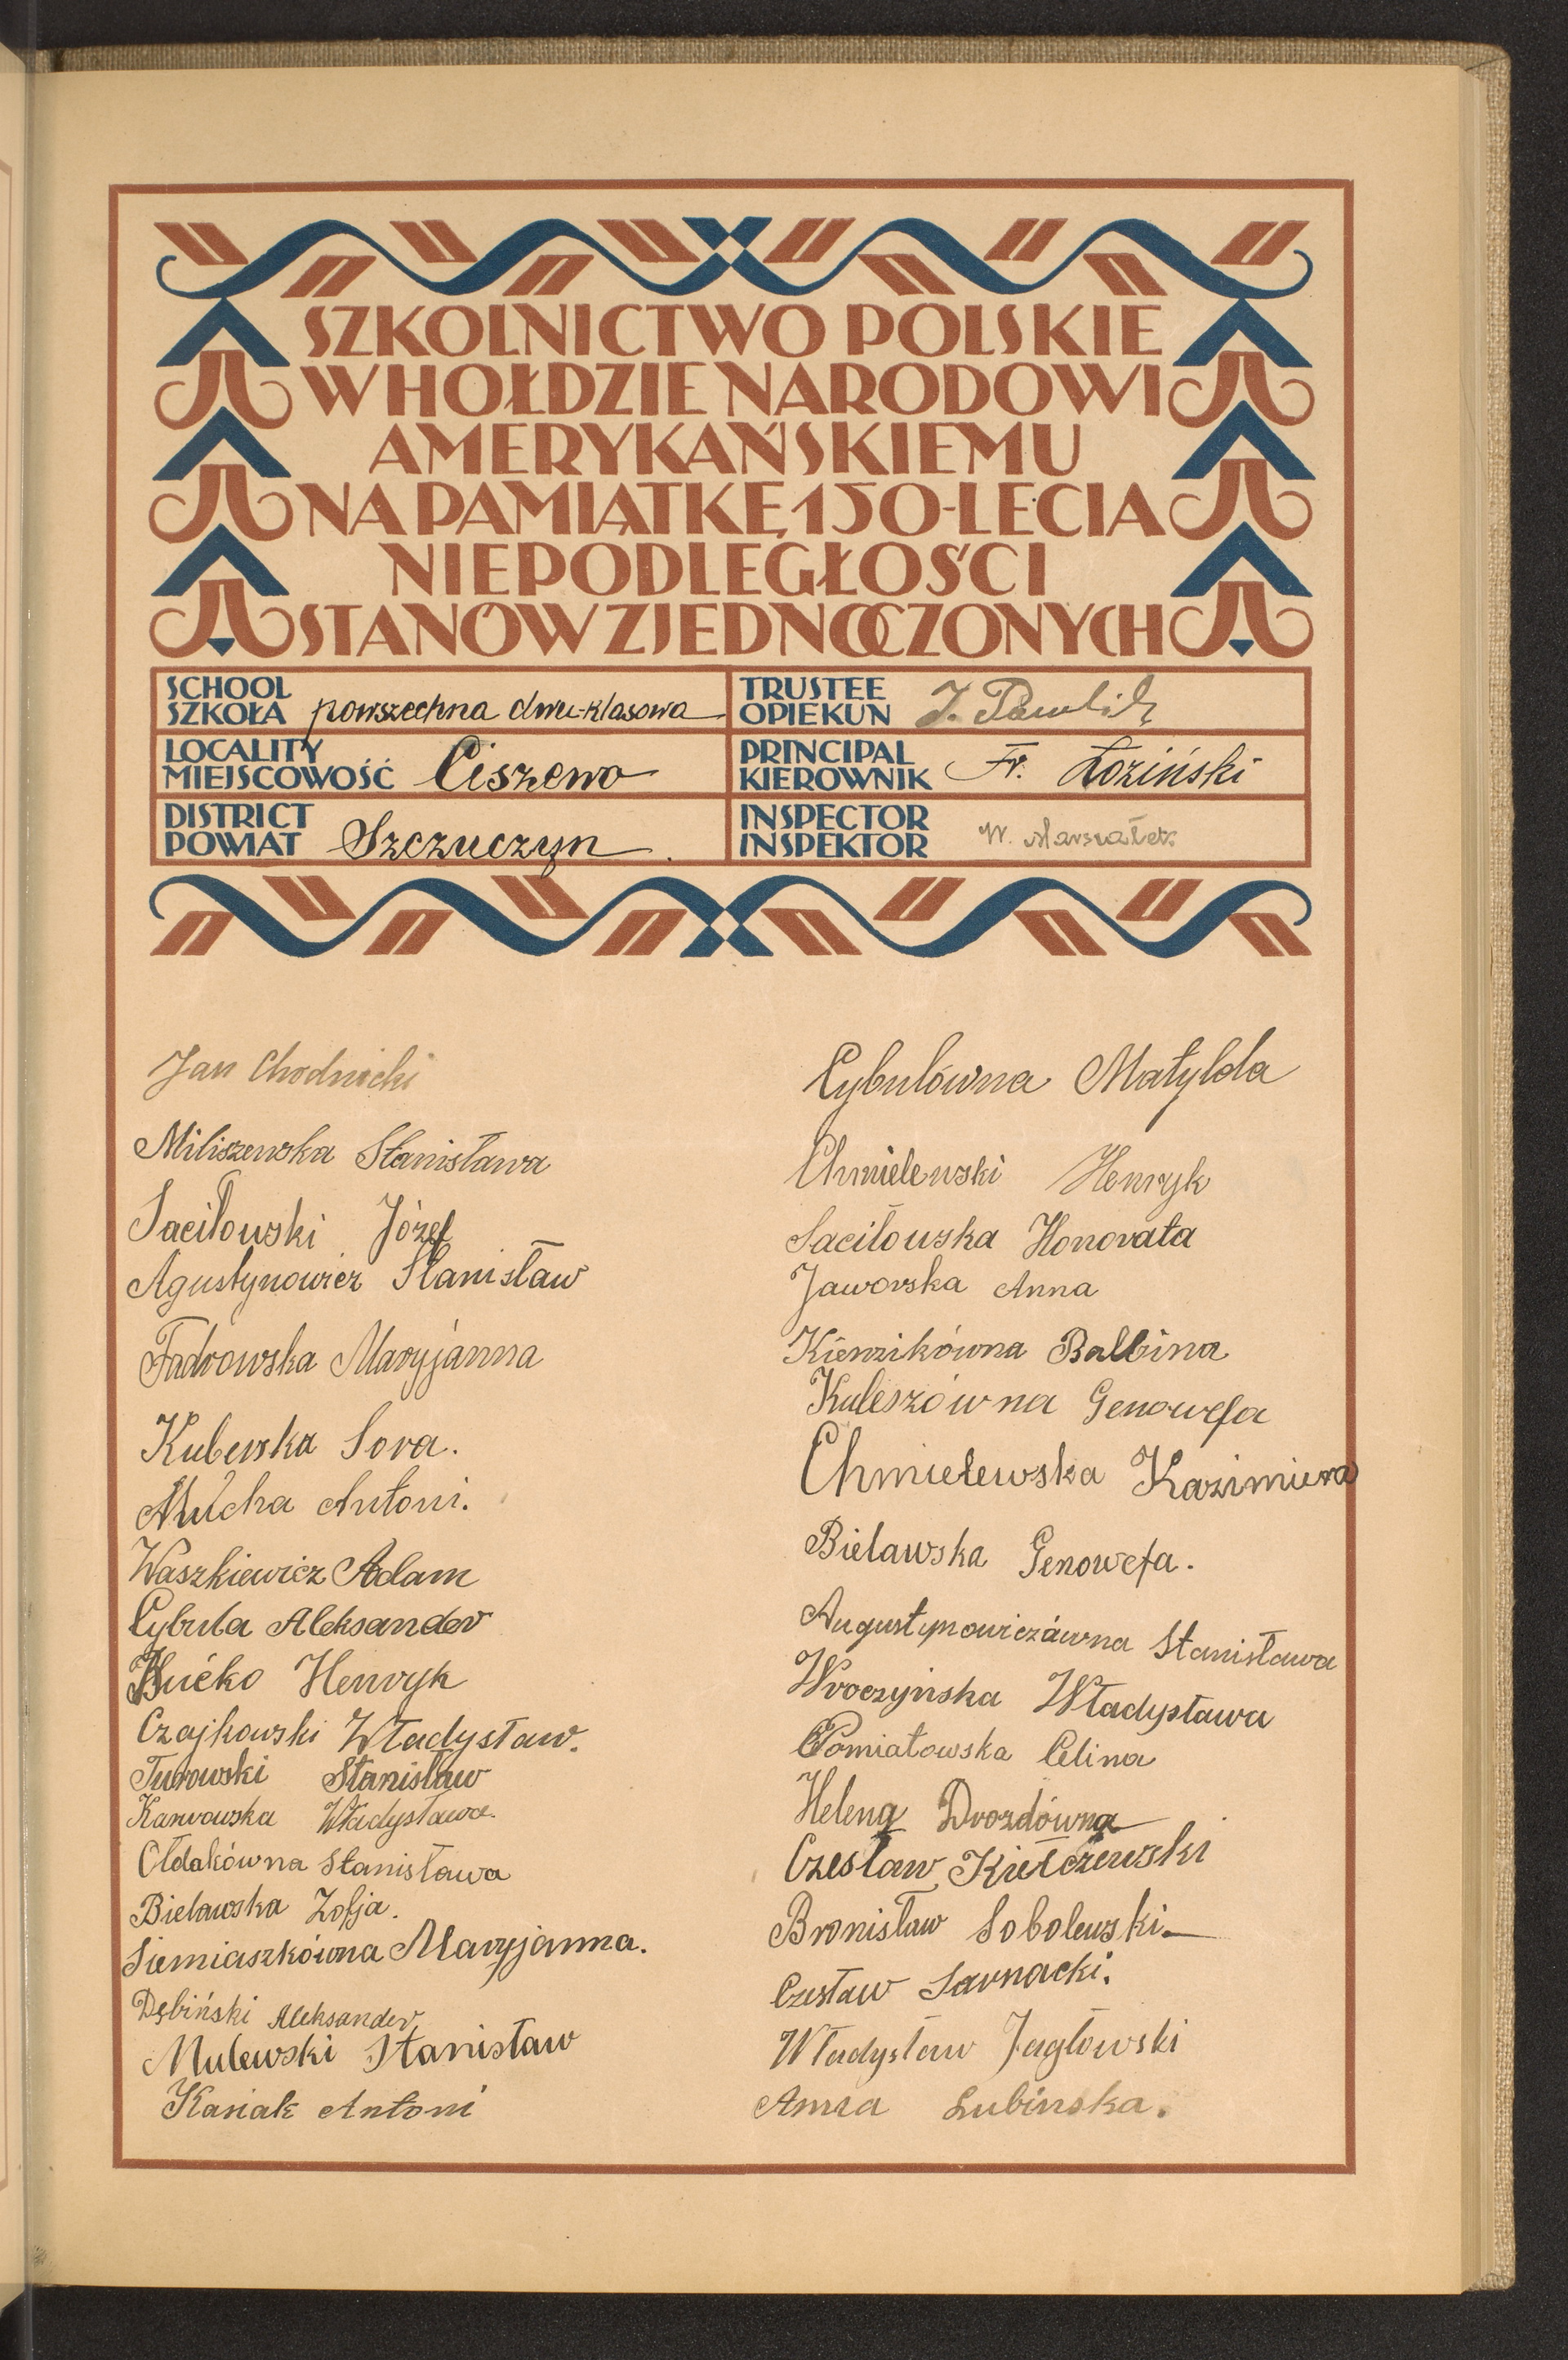 SZKOLNICTWO POLSKIE
W HOŁDZIE NARODOWI
AMERYKAŃSKIEMU
NA PAMIĄTKĘ 150-LECIA
NIEPODLEGŁOŚCI
STANÓW ZJEDNOCZONYCH
SCHOOL
SZKOŁA powszechna dwu-klasowa
TRUSTEE
OPIEKUN J.
LOCALITY
MIEJSCOWOŚĆ Ciszewo
PRINCIPAL
KIEROWNIK Fr. Łoziński
DISTRICT
POWIAT Szczuczyn
INSPECTOR
INSPEKTOR W. Marszałek
Jan Chodnicki
Miliszewska Stanisława
Saciłowski Józef
Agustynowicz Stanisław
Fadrowska Maryjanna
Kuberska Sora.
Mucha Antoni.
Waszkiewicz Adam
Cybula Aleksander
Henryk
Czajkowski Władysław.
Turowski Stanisław
Karwowska Władysława.
Ołdakówna Stanisława
Bielawska Zofja.
Siemiaszkówna Maryjanna.
Dębiński Aleksander
Mulewski Stanisław
Kasiak Antoni
Cybulówna Matylda
Chmielewski Henryk
Saciłowska Honorata
Jaworska Anna
Kienzikówna Balbina
Kuleszówna Genowefa
Chmielewska Kazimiera
Bielawska Genowefa.
Augustynowiczówna Stanisława
Wroczyńska Władysława
Pomiatowska Celina
Helena Drozdówna
Czesław Kiełczewski
Bronisław Sobolewski
Czesław Sarnacki.
Władysław Jagłowski
Anna Lubinska.